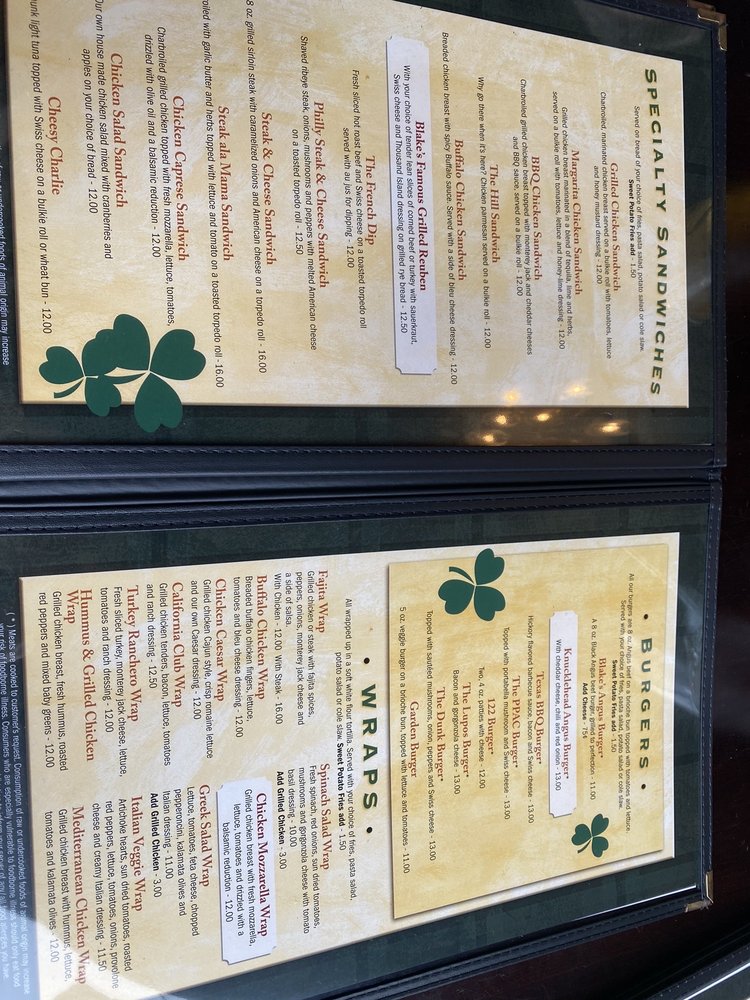 SPECIALTY SANDWICHES
Served on bread of your choice of fries, pasta salad, potato salad or cole slaw.
Sweet Potato Fries add - 1.50
Grilled Chicken Sandwich
Charbroiled, marinated chicken breast served on a bulkie roll with tomatoes, lettuce
and honey mustard dressing - 12.00
Margarita Chicken Sandwich
Grilled chicken breast marinated in a blend of tequila, lime and herbs,
served on a bulkie roll with tomatoes, lettuce and honey lime dressing - 12.00
BBQ Chicken Sandwich
Charbroiled grilled chicken breast topped with monterey jack and cheddar cheeses
and BBQ sauce, served on a bulkie roll - 12.00
The Hill Sandwich
Why go there when it's here? Chicken parmesan served on a bulkie roll - 12.00
Buffalo Chicken Sandwich
Breaded chicken breast with spicy Buffalo sauce. Served with a side of bleu cheese dressing - 12.00
Blake's Famous Grilled Reuben
With your choice of tender lean slices of corned beef or turkey with sauerkraut,
Swiss cheese and Thousand Island dressing on grilled rye bread - 12.50
The French Dip
Fresh sliced hot roast beef and Swiss cheese on a toasted torpedo roll
served with au jus for dipping - 12.00
Philly Steak & Cheese Sandwich
Shaved ribeye steak, onions, mushrooms and peppers with melted American cheese
on a toasted torpedo roll - 12.50
Steak & Cheese Sandwich
8 oz. grilled sirloin steak with caramelized onions and American cheese on a torpedo roll - 16.00
Steak ala Mama Sandwich
roiled with garlic butter and herbs topped with lettuce and tomato on a toasted torpedo roll - 16.00
Chicken Caprese Sandwich
Charbroiled grilled chicken topped with fresh mozzarella, lettuce, tomatoes,
drizzled with olive oil and a balsamic reduction - 12.00
Chicken Salad Sandwich
Our own house made chicken salad mixed with cranberries and
apples on your choice of bread - 12.00
Cheesy Charlie
unk light tuna topped with Swiss cheese on a bulkie roll or wheat bun - 12.00
undercooked foods of animal origin may increase
• BURGERS •
All our burgers are 8 oz. Angus beef on a brioche bun topped with tomatoes and lettuce.
Served with your choice of fries, pasta salad, potato salad or cole slaw.
Sweet Potato Fries add - 1.50
Blake's Angus Burger*
A 8 oz. Black Angus beef burger, grilled to perfection - 11.00
Add Cheese - 75¢
Knucklehead Angus Burger*
With cheddar cheese, chili and red onion - 13.00
Texas BBQ Burger*
Hickory flavored barbecue sauce, bacon and Swiss cheese - 13.00
The PPAC Burger*
Topped with portabella mushrooms and Swiss cheese - 13.00
122 Burger*
Two, 4 oz. patties with cheese - 12.00
The Lupos Burger*
Bacon and gorgonzola cheese - 13.00
The Dunk Burger*
Topped with sautéed mushrooms, onions, peppers and Swiss cheese - 13.00
Garden Burger
5 oz. veggie burger on a brioche bun, topped with lettuce and tomatoes - 11.00
• WRAPS •
All wrapped up in a soft white flour tortilla. Served with your choice of fries, pasta salad,
potato salad or cole slaw. Sweet Potato Fries add - 1.50
Fajita Wrap
Grilled chicken or steak with fajita spices,
peppers, onions, monterey jack cheese and
a side of salsa.
With Chicken - 12.00 With Steak - 16.00
Buffalo Chicken Wrap
Breaded buffalo chicken fingers, lettuce,
tomatoes and bleu cheese dressing - 12.00
Chicken Caesar Wrap
Grilled chicken Cajun style, crisp romaine lettuce
and our own Caesar dressing - 12.00
California Club Wrap
Grilled chicken tenders, bacon, lettuce, tomatoes
and ranch dressing - 12.50
Turkey Ranchero Wrap
Fresh sliced turkey, monterey jack cheese, lettuce,
tomatoes and ranch dressing - 12.00
Hummus & Grilled Chicken
Wrap
Grilled chicken breast, fresh hummus, roasted
red peppers and mixed baby greens - 12.00
Spinach Salad Wrap
Fresh spinach, red onions, sun dried tomatoes,
mushrooms and gorgonzola cheese with tomato
basil dressing - 10.00
Add Grilled Chicken - 3.00
Chicken Mozzarella Wrap
Grilled chicken breast with fresh mozzarella,
lettuce, tomatoes and drizzled with a
balsamic reduction - 12.00
Greek Salad Wrap
Lettuce, tomatoes, feta cheese, chopped
pepperoncini, kalamata olives and
Italian dressing - 11.00
Add Grilled Chicken - 3.00
Italian Veggie Wrap
Artichoke hearts, sun dried tomatoes, roasted
red peppers, lettuce, tomatoes, onions, provolone
cheese and creamy Italian dressing - 11.50
Mediterranean Chicken Wrap
Grilled chicken breast with hummus, lettuce,
tomatoes and kalamata olives - 12.00
( * ) Meats are cooked to customer's request. Consumption of raw or undercooked foods of animal origin may increase
your risk of foodborne illness. Consumers who are especially vulnerable to foodborne illness should only eat food